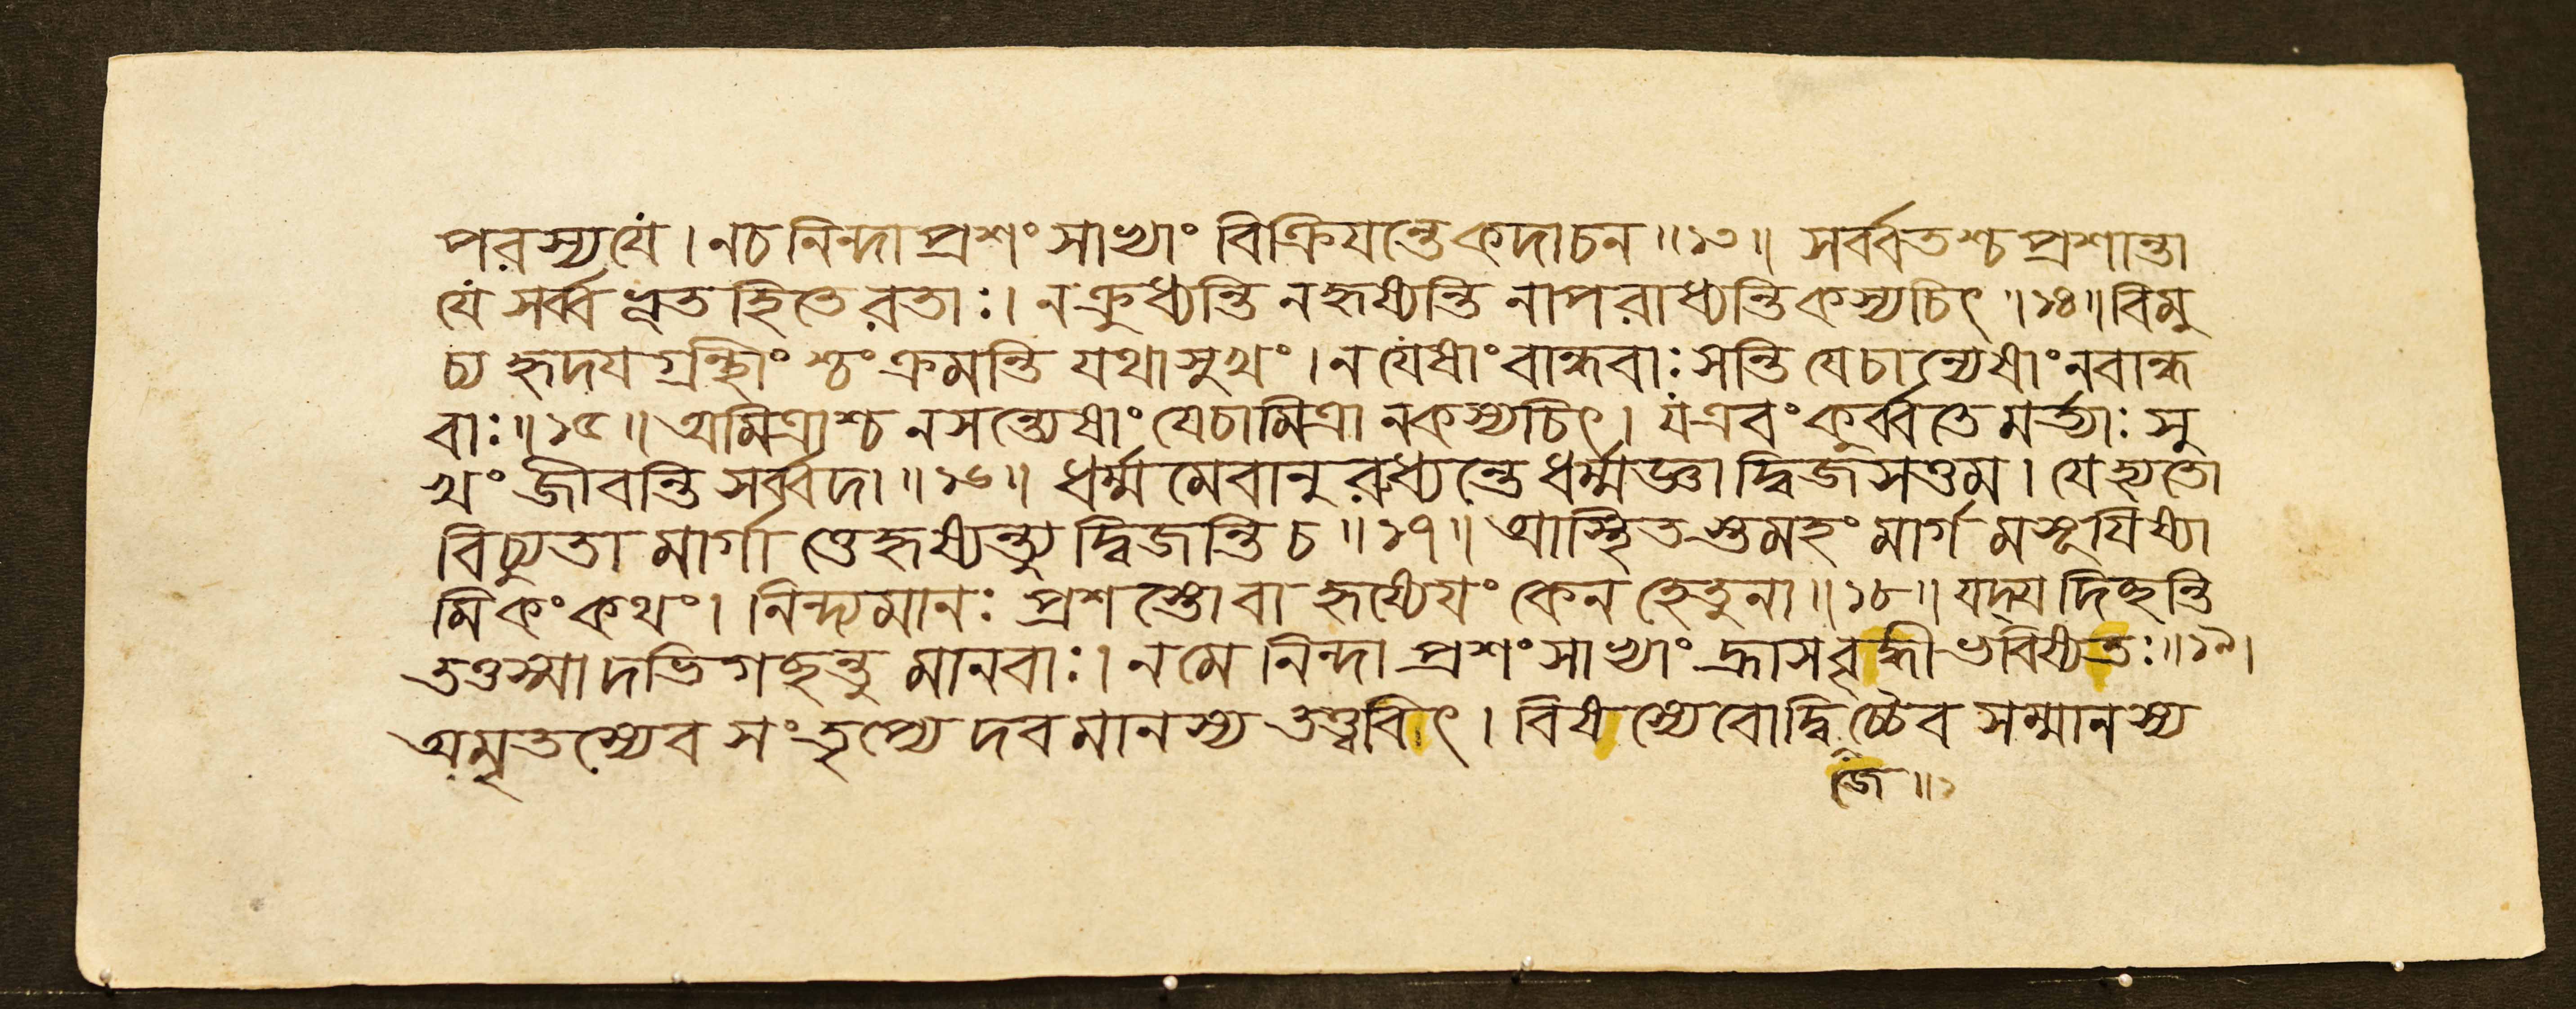 পরস্যযে। নচ নিন্দা প্রশংসাভ্যাং বিক্রিযন্তে কদাচন॥১৩॥ সর্ব্বতশ্চ প্রশান্তা
যে সর্ব্ব ভূত হিতে রতাঃ। ন ক্রুধ্যন্তি ন হৃষ্যন্তি নাপরাধ্যন্তি কস্যচিৎ॥১৪॥ বিমু
চ্য হৃদয গ্রন্থিং শ্চংক্রমন্তি যথাসুখং। ন যেষাং বান্ধবাঃ সন্তি যেচান্যেষাং নবান্ধ
বাঃ॥১৫॥ অমিত্রাশ্চ নসন্ত্যেষাং যেচামিত্রা নকস্যচিৎ। যএবং কুর্ব্বতে মর্ত্যাঃ সু
খং জীবন্তি সর্ব্বদা॥১৬॥ ধর্ম্ম মেবানু রুধ্যন্তে ধর্ম্মজ্ঞা দ্বিজসত্তম। যেহ্যতো
বিচ্যুতা মার্গা ত্তেহৃষ্যন্ত্যু দ্বিজন্তি চ॥১৭॥ আস্থিতস্তমহং মার্গ মসূযিষ্যা
মি কং কথং। নিন্দ্যমানঃ প্রশস্তোবা হৃষ্যেযং কেন হেতুনা॥১৮॥ যদ্য দিচ্ছন্তি
তত্তস্মা দভিগচ্ছন্তু মানবাঃ। নমে নিন্দা প্রশংসাভ্যাং হ্রাসবৃদ্ধী ভবিষ্যতঃ॥১৯।
অমৃতস্যেব সংতৃপ্যে দবমানস্য তত্ত্ববিৎ। বিষস্যেবোদ্বিজেচ্চৈব সম্মানস্য
জে॥১